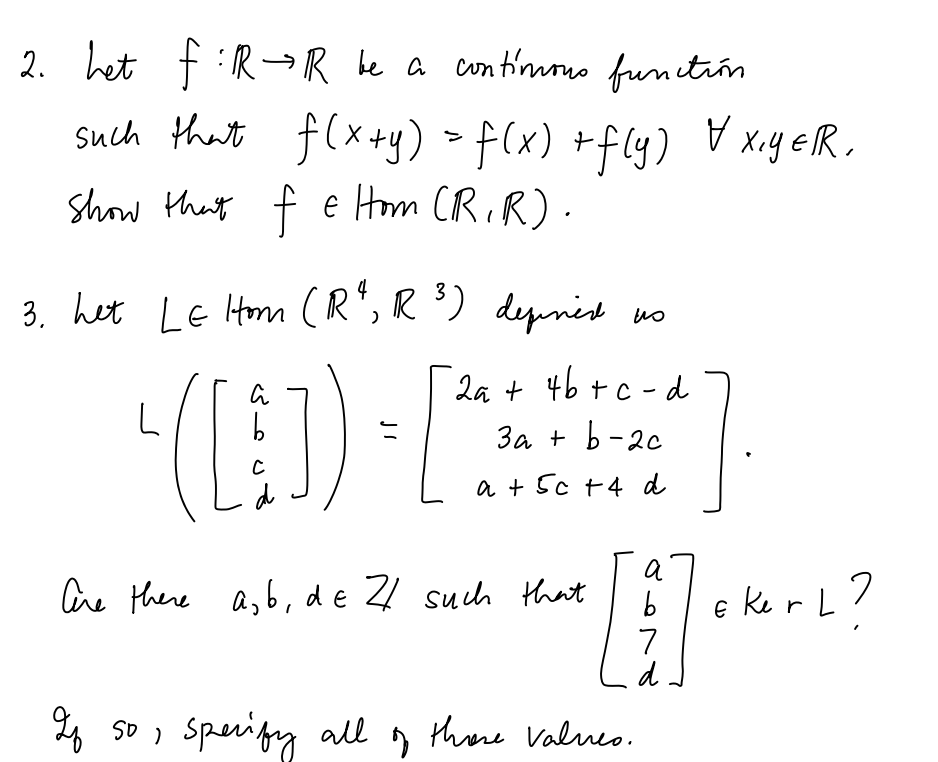 2. Let f : ℝ → ℝ be a continuous function
such that f(x+y) = f(x) + f(y) ∀ x,y ∈ ℝ,
show that f ∈ Hom (ℝ, ℝ).
3. Let L ∈ Hom (ℝ⁴, ℝ³) defined as
L([a b c d]) = [2a + 4b + c - d
3a + b - 2c
a + 5c + 4 d].
Are there a, b, d ∈ ℤ such that [a b 7 d] ∈ Ker L?
If so, specify all of those values.